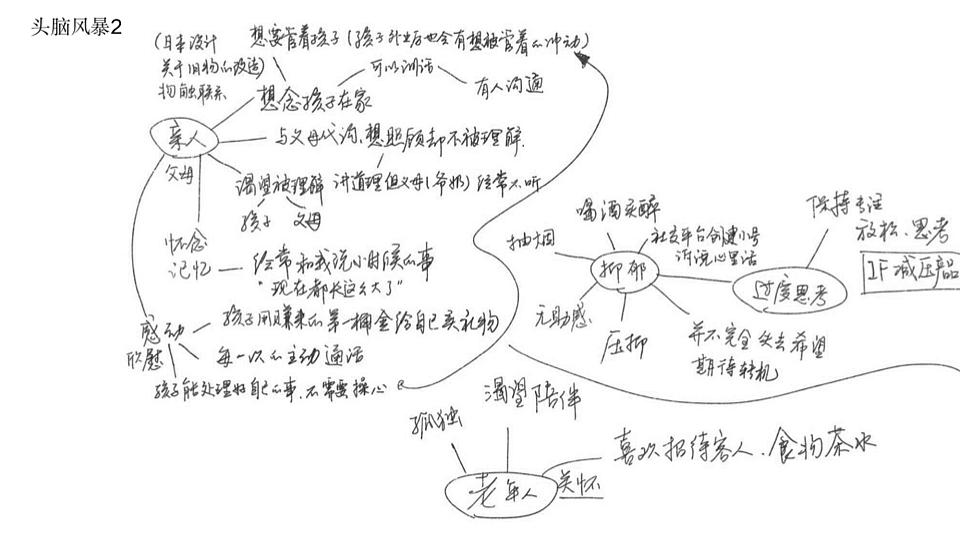 头脑风暴2
(日本设计
关于旧物的改造)
物品联系
想要管着孩子(孩子外出后也会有想被管着的冲动)
可以训话
有人沟通
想念孩子在家
亲人
父母
与父母代沟、想照顾却不被理解.
渴望被理解
孩子 父母
讲道理但父母(爷奶)经常不听
怀念
记忆
经常和我说小时候的事
"现在都长这么大了"
感动
欣慰
孩子用赚来的第一桶金给自己买礼物
每一次的主动通话
孩子能处理好自己的事、不需要操心
喝酒买醉
抽烟
社交平台创建小号
诉说心里话
抑郁
无助感
压抑
并不完全失去希望
期待转机
过度思考
保持专注
放松、思考
IF减压产品
渴望陪伴
孤独
老年人
关怀
喜欢招待客人、食物茶水